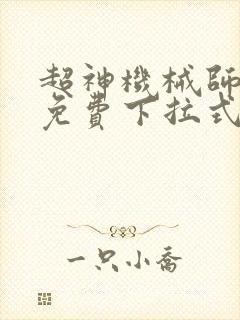 超神機械師
免費下拉式
一只小喬